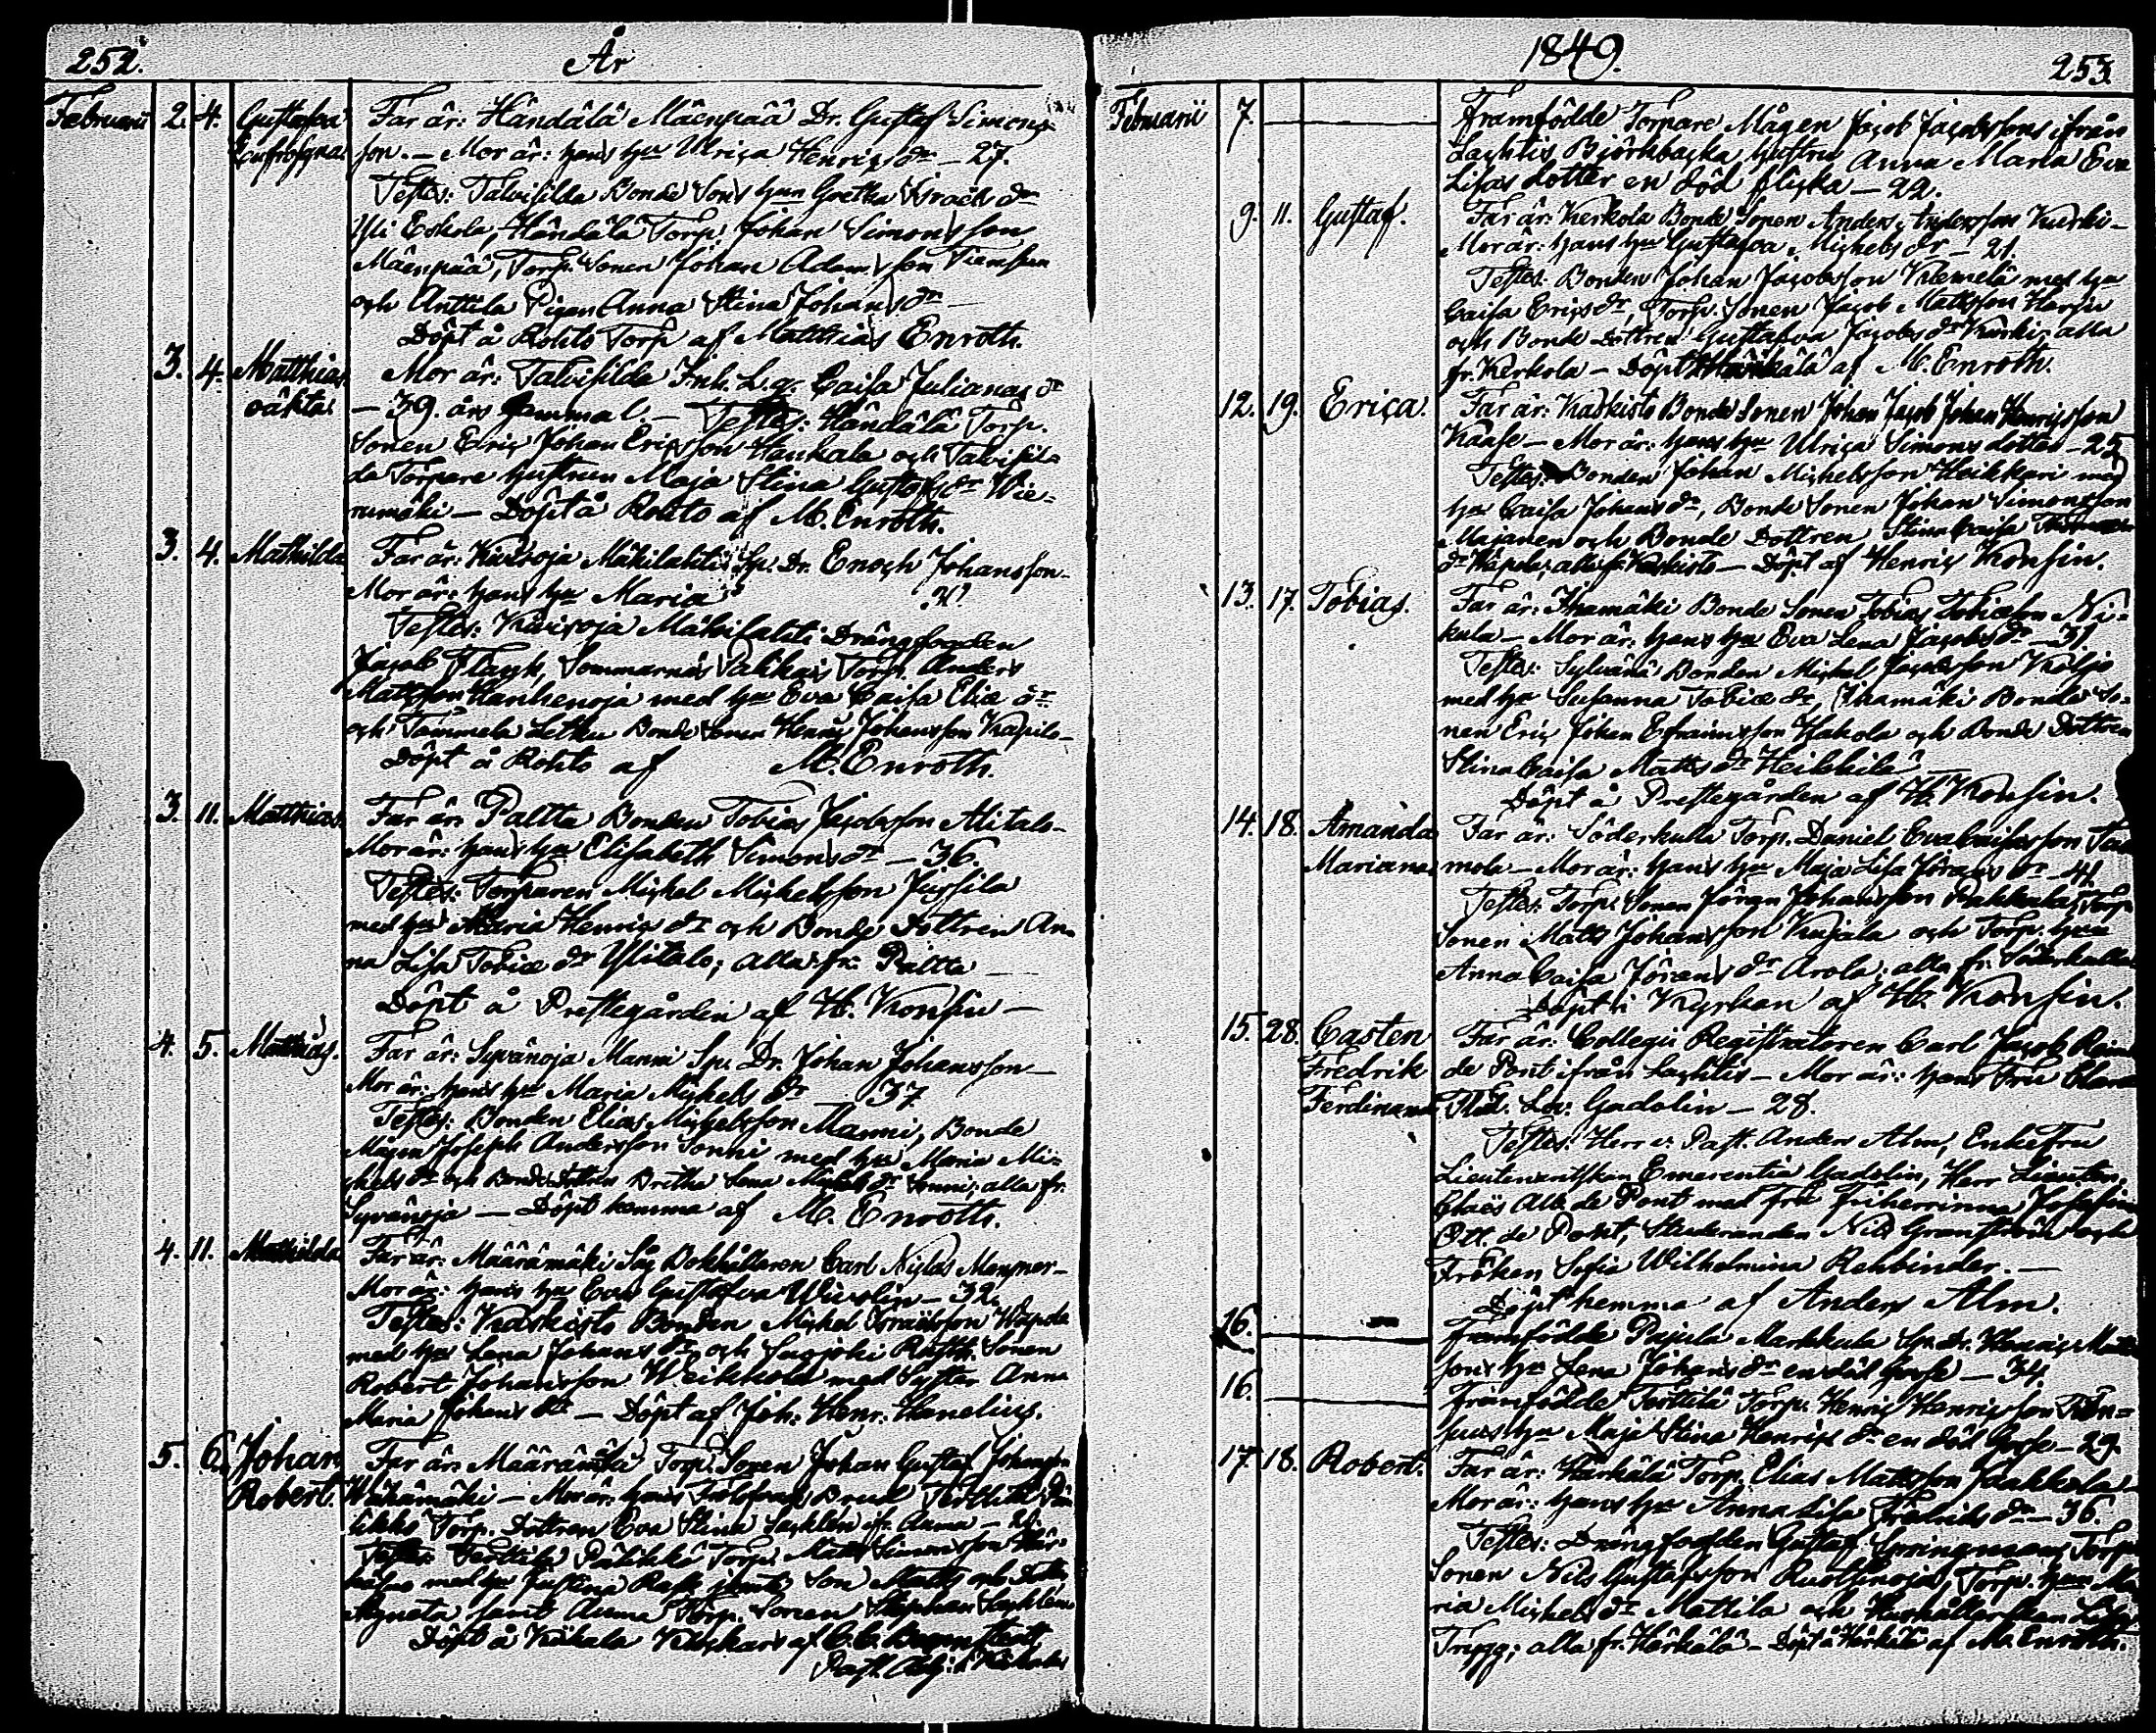 252. År
Februarii 2. 4. Gustafva Far är: Händälä Mäenpää Dr. Gustaf Simons
Eufrosyna son. — Mor är: hans hu Ulrica Henrics dr — 27.
Testes: Talvisilda Bonde Sons hun Gretha Israels dr
Yli Eskola, Händälä Torp. Johan Simonsson
Mäenpää, Torp. Sonen Johan Adamsson
och Anttila Pigan Anna Stina Johans dr —
Döpt å Rohto Torp af Matthias Enroth.
3. 4. Matthias Mor är: Talvisilda Inh. L. q. Caisa Julianas dr
oäkta. — 39. års gammal. — Testes: Händälä Torp.
Sonen Eric Johan Ericsson Hankala och Talvisil-
da Torpare hustrun Maja Stina Gustafs dr Wie-
rumäki — Döpt å Rohto af M. Enroth.
3. 4. Mathilda Far är: Kuivoja Mäkilahti Sp. Dr. Enoch Johansson —
Mor är: hans hu Maria
Testes: Kuivoja Mäkilahti Drängfogden
Jacob Flays, Sommarnäs Palikais Torp. Anders
Mattsson Hanhenoja med hu Eva Caisa Eliæ dr
och Tammela Letku Bonde Sonen Henric Johansson
Döpt å Rohto af M. Enroth.
3. 11. Matthias. Far är: Paltta Bonden Tobias Jacobsson Alitalo —
Mor är: hans hu Elisabeth Simons dr — 36.
Testes: Torparen Michel Michelsson Jussila
med hu Maria Henrics dr och Bonde Dottren An-
na Lisa Tobiæ dr Ylitalo; alla fr. Paltta —
Döpt å Prestegården af H. Konsin —
4. 5. Matthias. Far är: Syvänoja Manni Sp. Dr. Johan Johansson —
Mor är: hans hu Maria Michels dr — 37
Testes: Bonden Elias Michelsson Manni, Bonde
Mågen Joseph Andersson Sonni med hu Maria Mi-
chels dr och Bonde Dottren Bretha Lena Michels dr Sonni; alla fr.
Syvänoja — Döpt hemma af M. Enroth.
4. 11. Mathilda Far är: Määrämäki Såg Bokhållaren Carl Niclas Mexner —
Mor är: hans hu Eva Gustafva — 32.
Testes: Kaskisto Bonden Michel Israelsson Wäpola
med hu Lena Johans dr och Suojoki Rusth. Sonen
Robert Johansson Weikkola med Syster Anna
Maria Johans dr — Döpt af Joh. Henr. Hanelius.
5. 6. Johan Far är: Torp. Sonen Johan Gustaf Johansson
Robert. Wähämäki — Mor är: hans Trolofvade Brud
Torp. Dottren Eva Stina Lachlén fr. Auma — 21.
Testes: Terttilä Torp. Matts Simonsson
med hu Justina samt Son Matts och Dotter
Agneta samt Auma Torp. Sonen Stephan Lachlén.
Döpt å Kökala af C. C.
Past. Adj. i

1849. 253.
Februarii 7. Framfödde Torpare Mågen Jacob Jacobssons ifrån
Lachtis Björkbacka hustru Anna Maria Eva
Lisas dotter en död flicka — 22.
9. 11. Gustaf. Far är: Kerkola Bonde Sonen Anders Andersson Kurki —
Mor är: hans hu Gustafva Michels dr — 21.
Testes: Bonden Johan Jacobsson Klemelä med hu
Caisa Erics dr, Torp. Sonen Jacob Mattsson Harju
och Bonde Dottren Gustafva Jacobs dr Kurki; alla
fr. Kerkola — Döpt å Härkälä af M. Enroth.
12. 19. Erica. Far är: Kaskisto Bonde Sonen Johan Jacob Johan Henricsson
Kaase — Mor är: hans hu Ulrica Simons dotter — 25
Testes: Bonden Johan Michelsson Heikkari med
hu Caisa Johans dr, Bonde Sonen Johan Simonsson
Majanen och Bonde Dottren Stina Caisa
dr Wäpola; alla fr. Kaskisto — Döpt af Henric Konsin.
13. 17. Tobias. Far är: Ihamäki Bonde Sonen Tobias Tobiasson Ni-
kula — Mor är: hans hu Eva Lena Jacobs dr — 31.
Testes: Sylvänä Bonden Michel Jacobsson Kiljo
med hu Susanna Tobiæ dr, Ihamäki Bonde So-
nen Eric Johan Efraimsson Hakola och Bonde Dottren
Stina Caisa Matts dr Heikkilä —
Döpt å Prestegården af H. Konsin.
14. 18. Amanda Far är: Söderkulla Torp. Daniel Eva Caisasson Tam
Mariana. mola — Mor är: hans hu Maja Lisa Jörans dr — 41.
Testes: Torp. Sonen Jöran Johansson Pakkala, Torp.
Sonen Matts Johansson Kujala och Torp. hun
Anna Caisa Jörans dr Arola; alla fr. Söderkulla
Döpt i Kyrkan af H. Konsin.
15. 28. Casten Far är: Collegii Registratoren Carl Jacob Reinh
Fredrik de Pont ifrån Lachtis — Mor är: hans Fru Clara
Ferdinand. Lov. Gadolin — 28.
Testes: Herr v. Past. Anders Alm, Enke Fru
Lieutenantskan Emerentia Gadolin, Herr Lieuten.
Claës Alb. de Pont med Fru Friherrinna Josefina
Ott. de Pont, Studeranden Nils Granström och
Fröken Sofia Wilhelmina Rehbinder. —
Döpt hemma af Anders Alm.
16. — Framfödde Pajula Markkula Sp. Dr. Henric Matts
sons hu Lena Johans dr en död gosse — 34.
16. Framfödde Terttilä Torp. Henric Henricsson Tön=
sus hu Maja Stina Henrics dr en död Gosse — 29.
17. 18. Robert. Far är: Härkälä Torp. Elias Mattsson Jaakkola —
Mor är: hans hu Anna Lisa Fredriks dr — 36.
Testes: Drängfogden Gustaf Springman, Torp.
Sonen Nils Gustafsson Ruotsinoja, Torp. hun Ma
ria Michels dr Mattila och Hushållerskan Lisa
Trygg; alla fr. Härkälä — Döpt å Härkälä af M. Enroth.